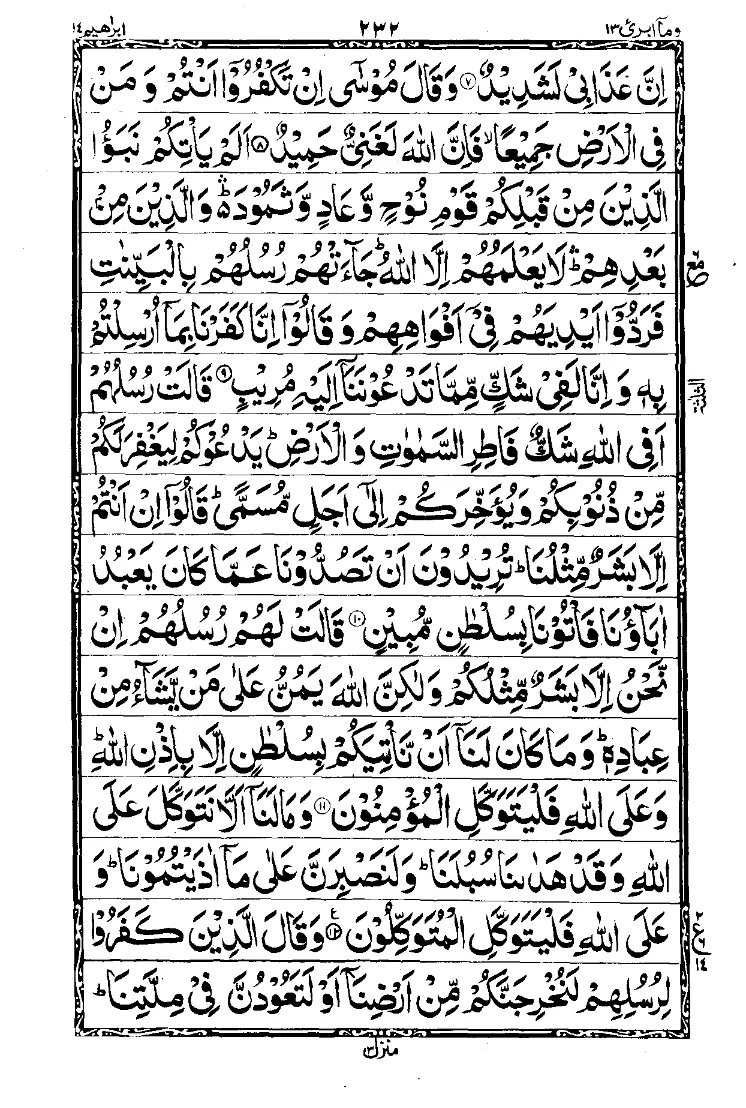 وما ابرئ ١٣ ٢٣٢ ابراهيم ١٤
اِنَّ عَذَابِیْ لَشَدِیْدٌ ۷ وَقَالَ مُوْسٰۤی اِنْ تَكْفُرُوْۤا اَنْتُمْ وَ مَنْ
فِی الْاَرْضِ جَمِیْعًا ۙ فَاِنَّ اللّٰهَ لَغَنِیٌّ حَمِیْدٌ ۸ اَلَمْ یَاْتِكُمْ نَبَؤُا
الَّذِیْنَ مِنْ قَبْلِكُمْ قَوْمِ نُوْحٍ وَّعَادٍ وَّثَمُوْدَ ۛؕ وَالَّذِیْنَ مِنْۢ
بَعْدِهِمْ ۛؕ لَا یَعْلَمُهُمْ اِلَّا اللّٰهُ ؕ جَآءَتْهُمْ رُسُلُهُمْ بِالْبَیِّنٰتِ
فَرَدُّوْۤا اَیْدِیَهُمْ فِیْۤ اَفْوَاهِهِمْ وَ قَالُوْۤا اِنَّا كَفَرْنَا بِمَاۤ اُرْسِلْتُمْ
بِهٖ وَ اِنَّا لَفِیْ شَكٍّ مِّمَّا تَدْعُوْنَنَاۤ اِلَیْهِ مُرِیْبٍ ۹ قَالَتْ رُسُلُهُمْ
اَفِی اللّٰهِ شَكٌّ فَاطِرِ السَّمٰوٰتِ وَ الْاَرْضِ ؕ یَدْعُوْكُمْ لِیَغْفِرَ لَكُمْ
مِّنْ ذُنُوْبِكُمْ وَیُؤَخِّرَكُمْ اِلٰۤی اَجَلٍ مُّسَمًّی ؕ قَالُوْۤا اِنْ اَنْتُمْ
اِلَّا بَشَرٌ مِّثْلُنَا ؕ تُرِیْدُوْنَ اَنْ تَصُدُّوْنَا عَمَّا كَانَ یَعْبُدُ
اٰبَآؤُنَا فَاْتُوْنَا بِسُلْطٰنٍ مُّبِیْنٍ ۱۰ قَالَتْ لَهُمْ رُسُلُهُمْ اِنْ
نَّحْنُ اِلَّا بَشَرٌ مِّثْلُكُمْ وَلٰكِنَّ اللّٰهَ یَمُنُّ عَلٰی مَنْ یَّشَآءُ مِنْ
عِبَادِهٖ ؕ وَ مَا كَانَ لَنَاۤ اَنْ نَّاْتِیَكُمْ بِسُلْطٰنٍ اِلَّا بِاِذْنِ اللّٰهِ ؕ
وَعَلَی اللّٰهِ فَلْیَتَوَكَّلِ الْمُؤْمِنُوْنَ ۱۱ وَمَا لَنَاۤ اَلَّا نَتَوَكَّلَ عَلَی
اللّٰهِ وَقَدْ هَدٰىنَا سُبُلَنَا ؕ وَلَنَصْبِرَنَّ عَلٰی مَاۤ اٰذَیْتُمُوْنَا ؕ وَ
عَلَی اللّٰهِ فَلْیَتَوَكَّلِ الْمُتَوَكِّلُوْنَ ۱۲ وَقَالَ الَّذِیْنَ كَفَرُوْا
لِرُسُلِهِمْ لَنُخْرِجَنَّكُمْ مِّنْ اَرْضِنَاۤ اَوْ لَتَعُوْدُنَّ فِیْ مِلَّتِنَا ؕ
منزل ٣
مع
الثلثة
٢
ع
٦
١٤